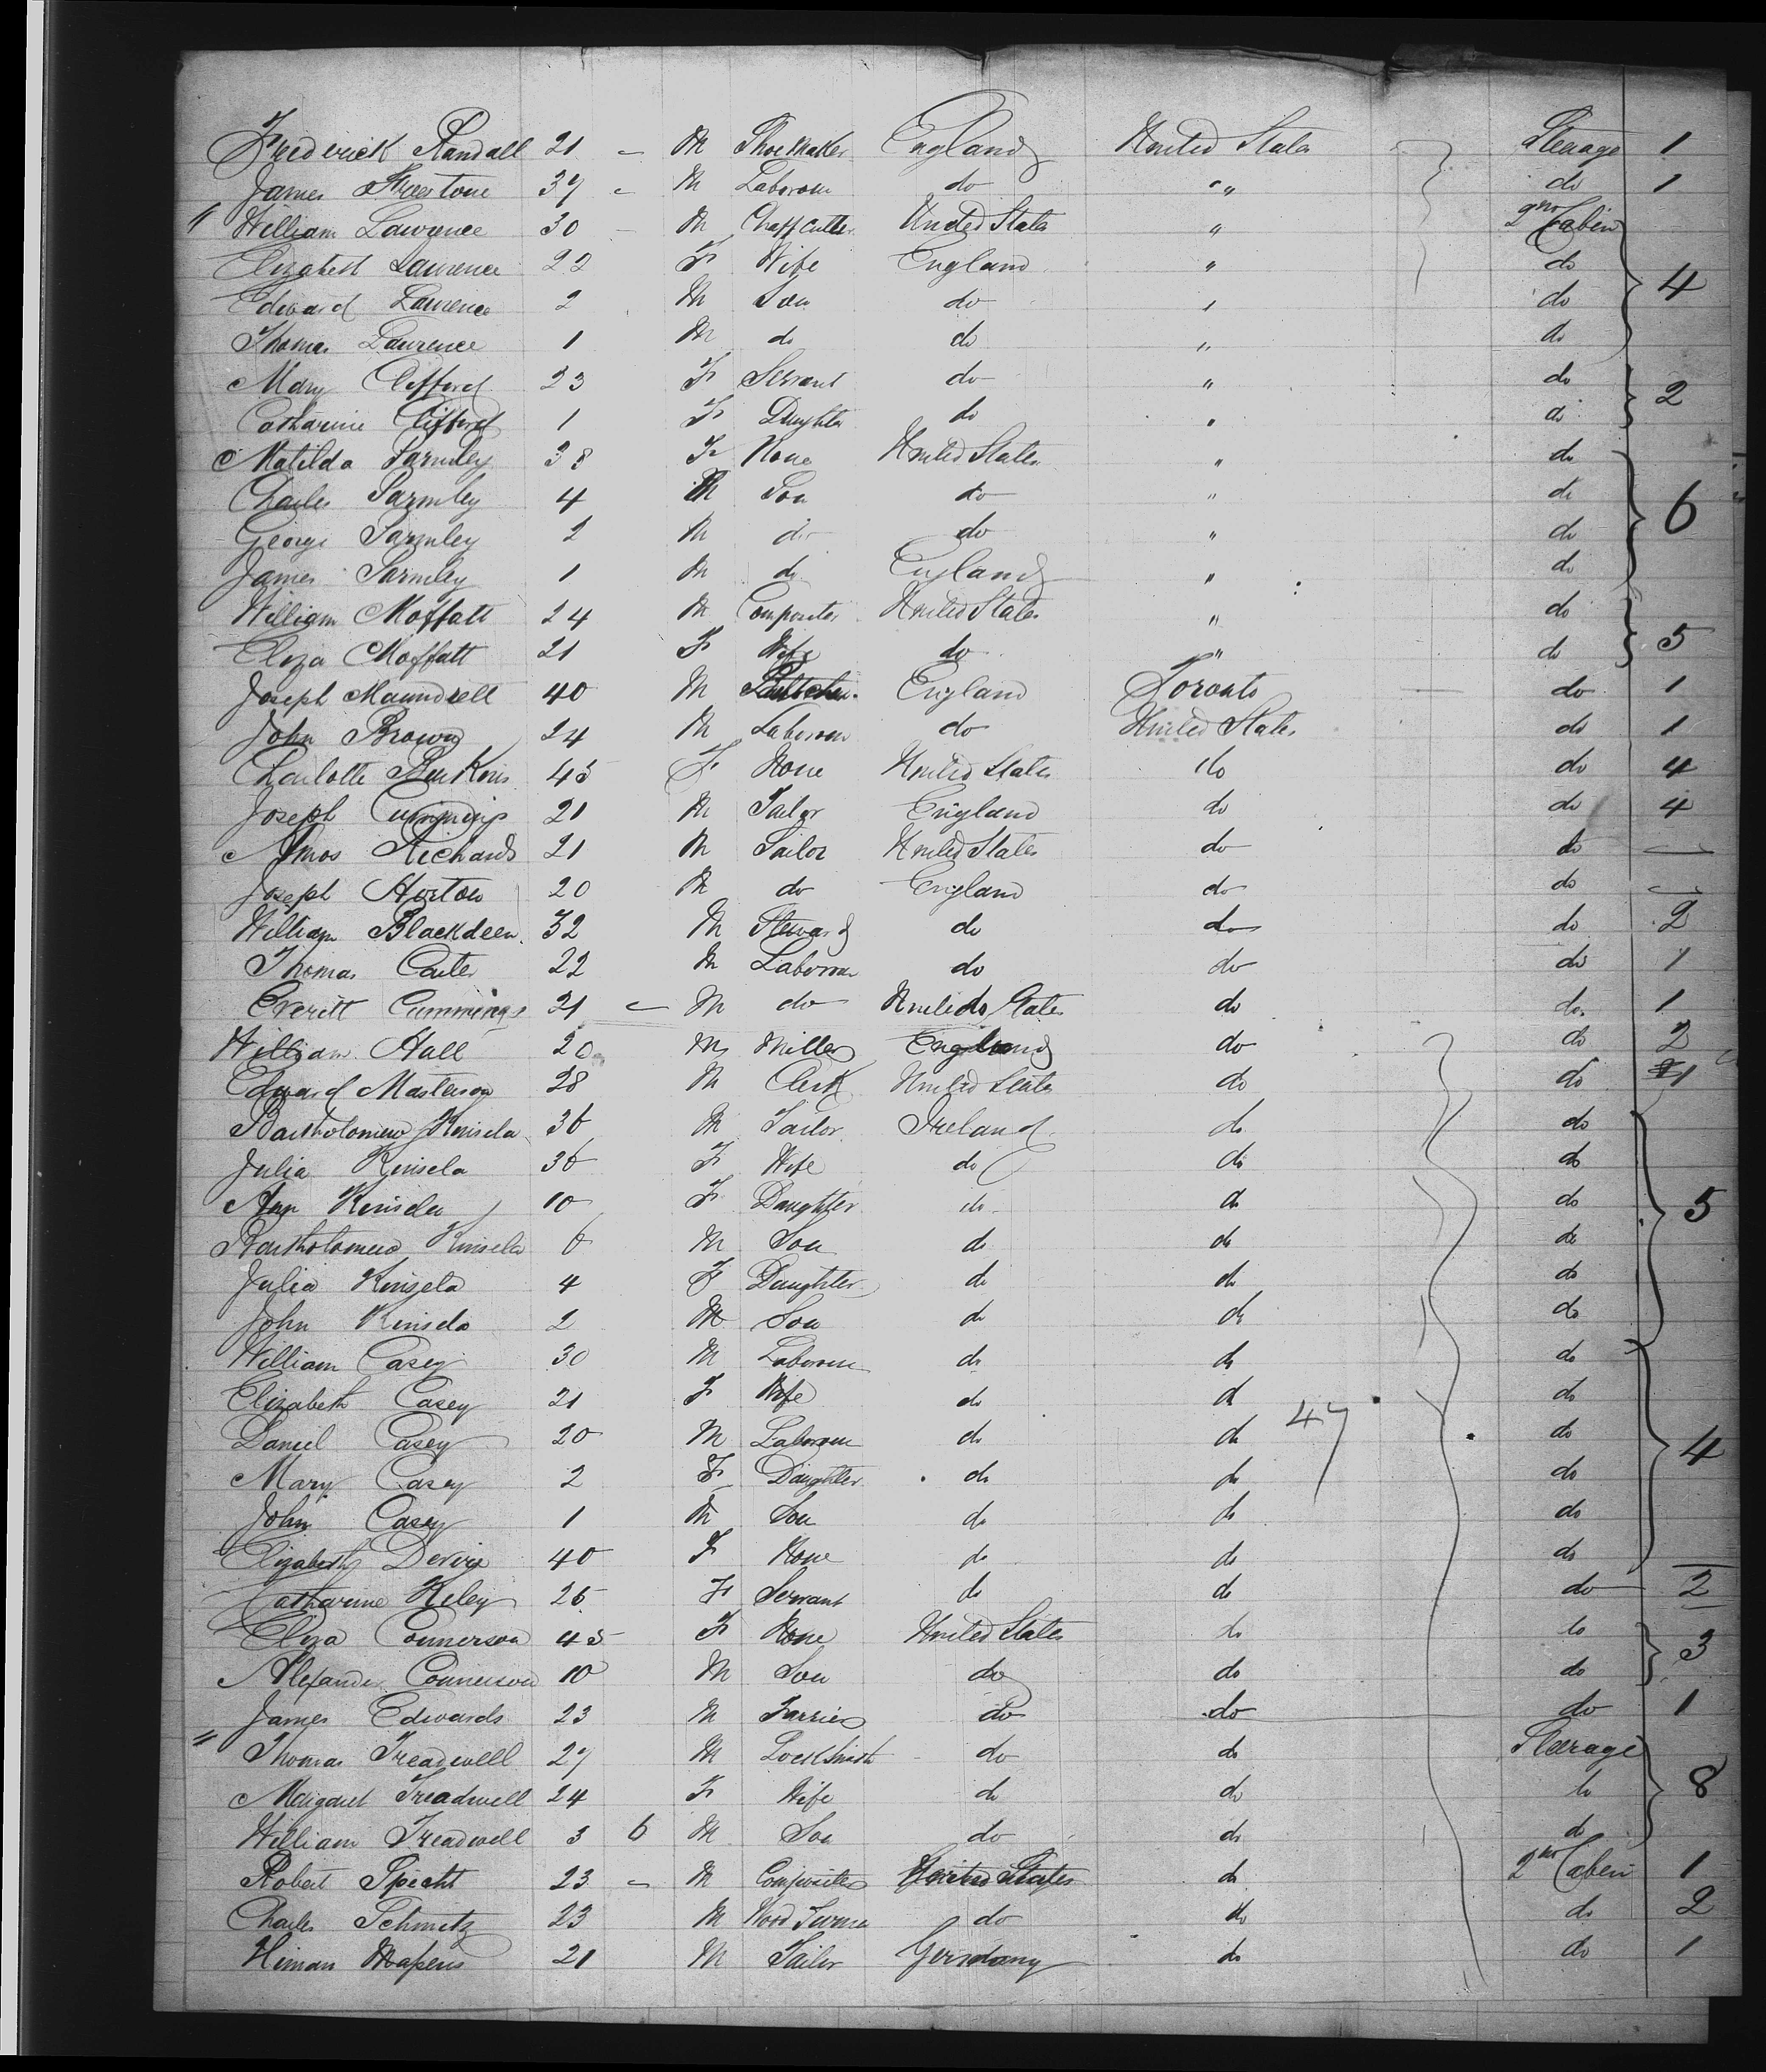 Frederick Randall 21 – M Shoe Maker England United States Steerage 1
James 37 – M Labourer do " do 1
" William Lawrence 30 – M Chaff Cutter United States " 2nd Cabin
Elizabeth Lawrence 22 F Wife England " do 4
Edward Lawrence 2 M Son do " do
Thomas Lawrence 1 M do do " do
Mary Clifford 23 F Servant do " do 2
Catharine Clifford 1 F Daughter do " do
Matilda Sarmley 38 F None United States " do
Charles Sarmley 4 M Son do " do 6
George Sarmley 2 M do do " do
James Sarmley 1 M do England " do
William Moffatt 24 M Compositor United States " do
Eliza Moffatt 21 F Wife do " do 5
Joseph Maundrell 40 M England Toronto do 1
John Brown 24 M Labourer do United States do 1
Charlotte 45 F None United States do do 4
Joseph Cummings 21 M Tailor England do do 4
Amos Richards 21 M Tailor United States do do —
Joseph Horton 20 M do England do do —
William Blackdeen 32 M Steward do do do 2
Thomas Carter 22 M Labourer do do do 1
Everitt Cummings 21 – M do United States do do 1
William Hall 20 M Miller England do do 2
Edward Masterson 28 M Clerk United States do do 1
Bartholomew Kinsela 36 M Tailor Ireland do do
Julia Kinsela 36 F Wife do do do
Ann Kinsela 10 F Daughter do do do 5
Bartholomew Kinsela 6 M Son do do do
Julia Kinsela 4 F Daughter do do do
John Kinsela 2 M Son do do do
William Casey 30 M Labourer do do do
Elizabeth Casey 21 F Wife do do do
Daniel Casey 20 M Labourer do do 47 do 4
Mary Casey 2 F Daughter do do do
John Casey 1 M Son do do do
Elizabeth 40 F None do do do
Catharine Kiley 26 F Servant do do do 2
Eliza Connerson 45 F None United States do do 3
Alexander Connerson 10 M Son do do do
James Edwards 23 M Farrier do do do 1
" Thomas Treadwell 27 M Locksmith do do Steerage
Margaret Treadwell 24 F Wife do do do 8
William Treadwell 3 6 M Son do do do
Robert Specht 23 – M Compositor United States do 2nd Cabin 1
Charles Schmitz 23 M Wood Turner do do do 2
Himan 21 M Tailor Germany do do 1